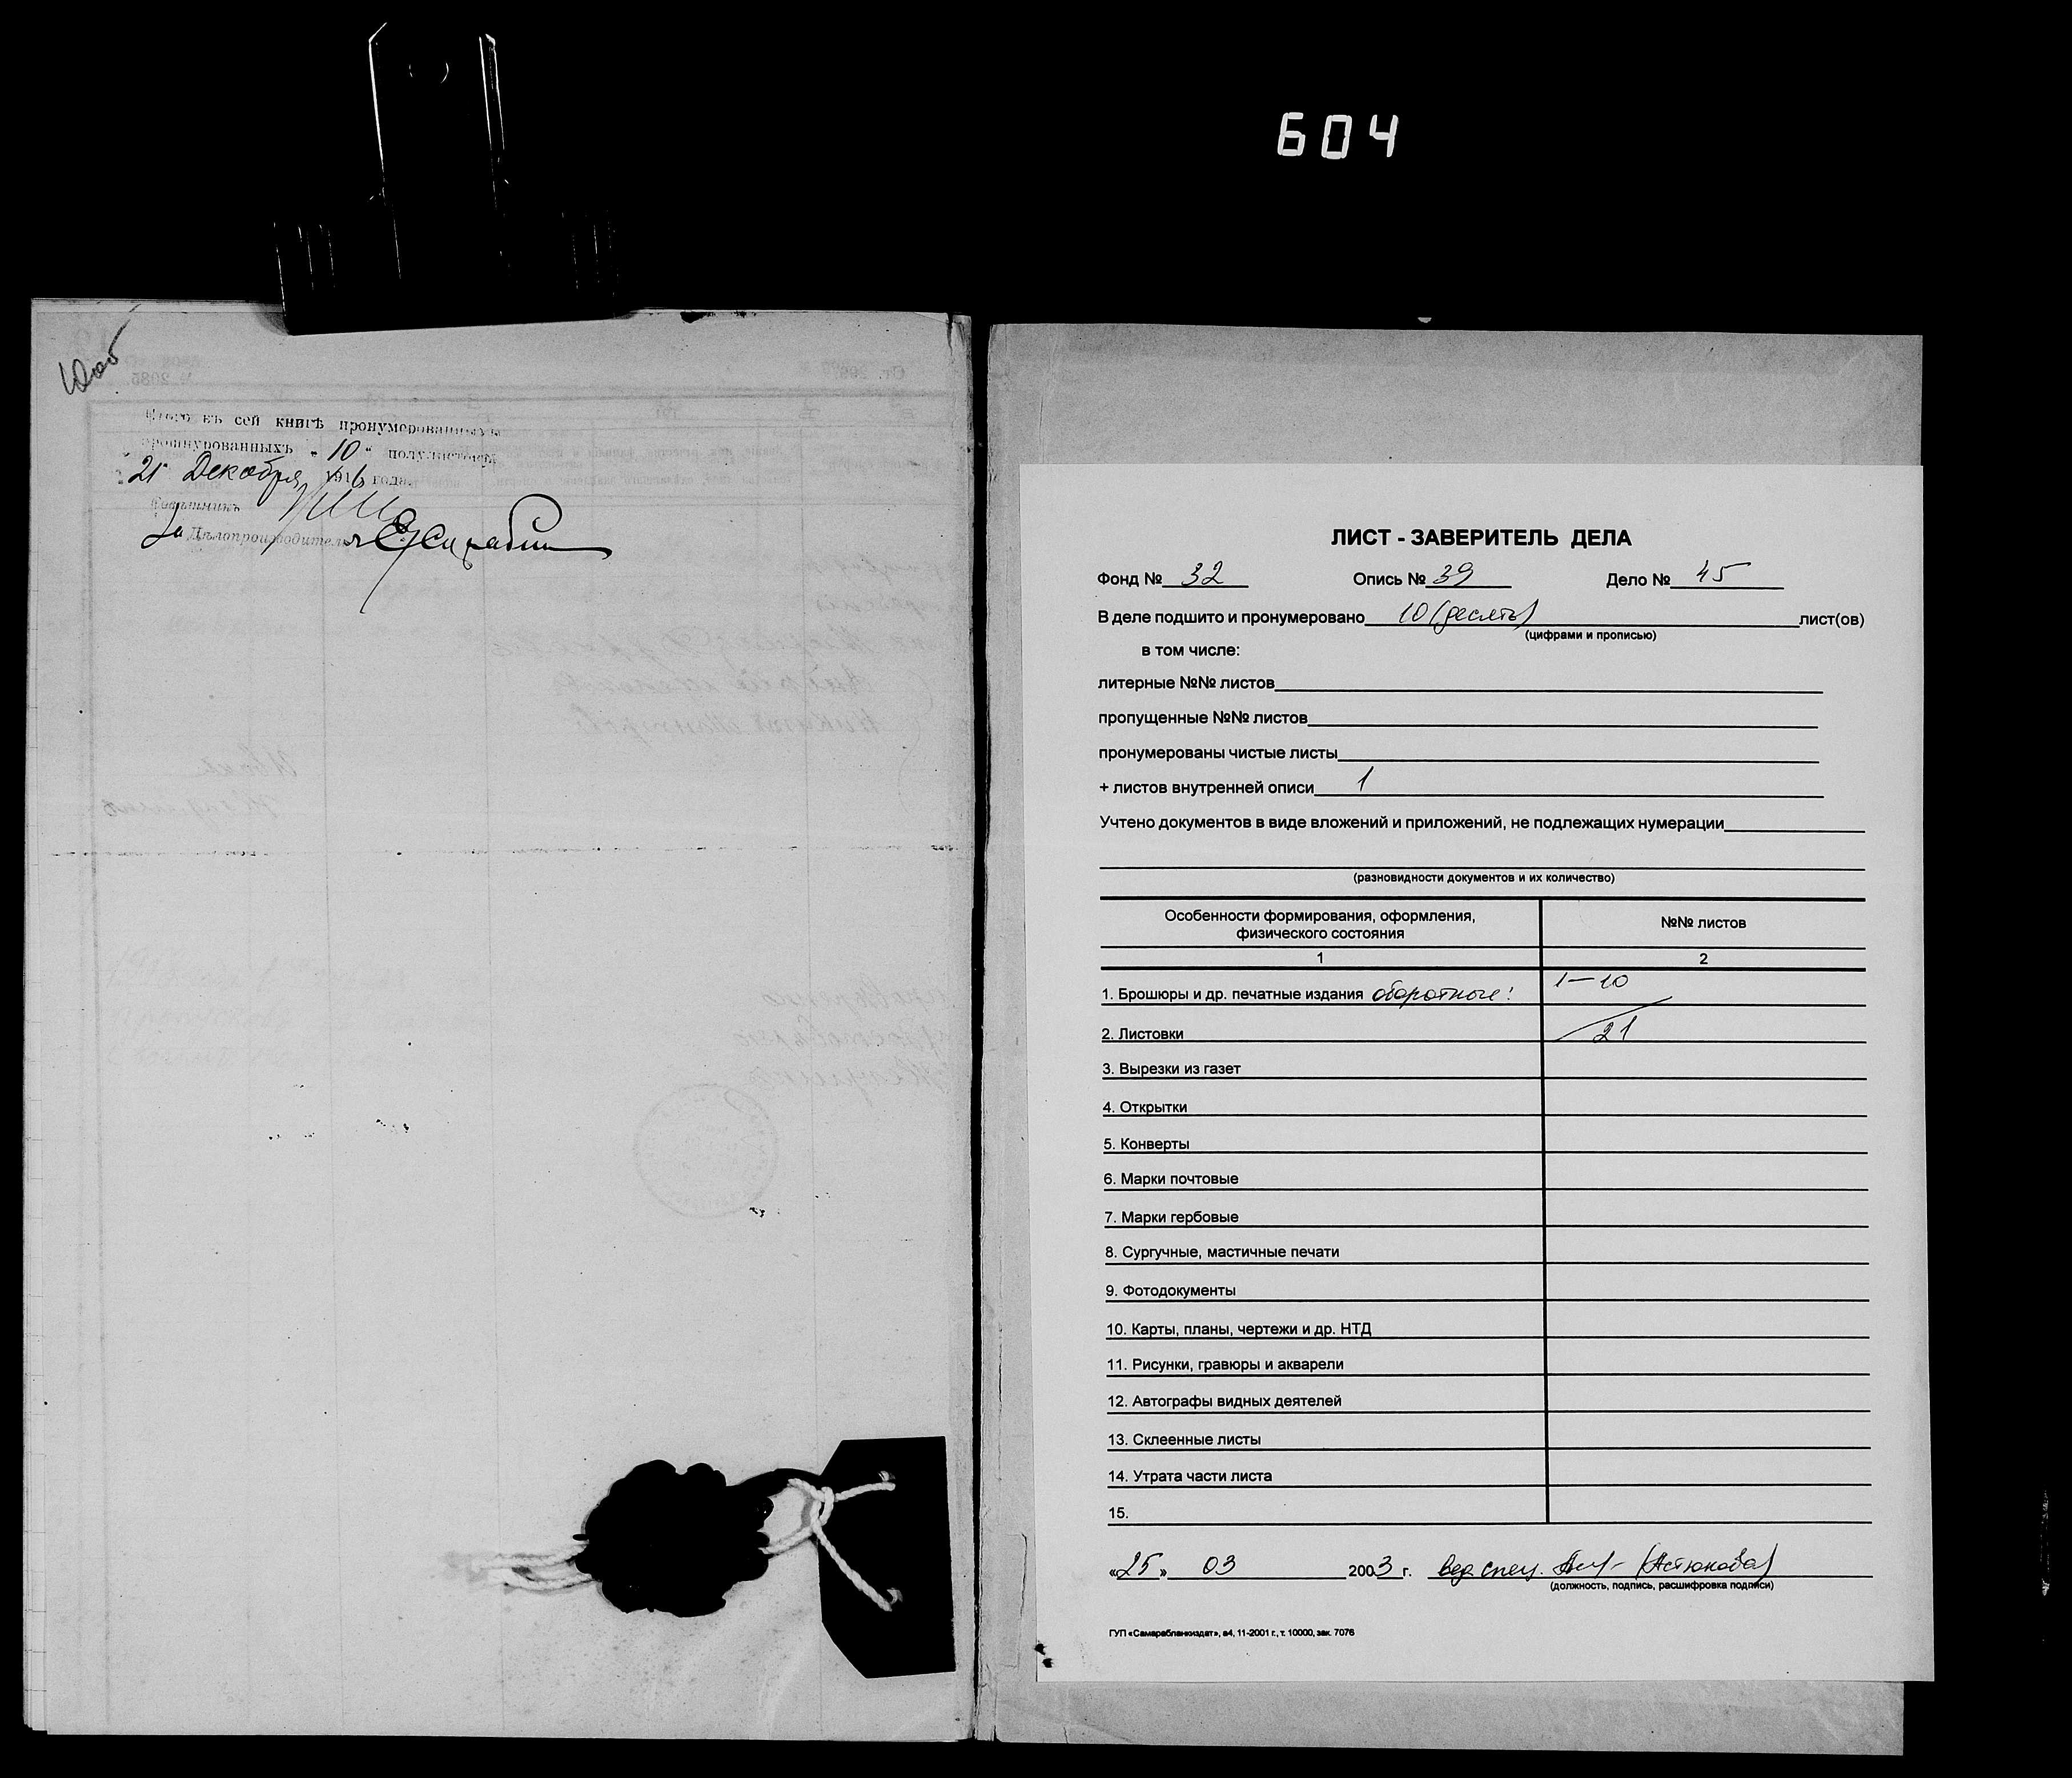 604
10об
Итого въ сей книгѣ пронумерованныхъ
прошнурованныхъ „ 10 “ полулистовъ
21 Декабря 1916 года.
Совѣтникъ
За Дѣлопроизводителя
ЛИСТ - ЗАВЕРИТЕЛЬ ДЕЛА
Фонд № 32 Опись № 39 Дело № 45
В деле подшито и пронумеровано 10 (десять) лист(ов)
(цифрами и прописью)
в том числе:
литерные №№ листов
пропущенные №№ листов
пронумерованы чистые листы
+ листов внутренней описи 1
Учтено документов в виде вложений и приложений, не подлежащих нумерации
(разновидности документов и их количество)
Особенности формирования, оформления,
физического состояния
№№ листов
1 2
1. Брошюры и др. печатные издания оборотные: 1-10
2. Листовки 21
3. Вырезки из газет
4. Открытки
5. Конверты
6. Марки почтовые
7. Марки гербовые
8. Сургучные, мастичные печати
9. Фотодокументы
10. Карты, планы, чертежи и др. НТД
11. Рисунки, гравюры и акварели
12. Автографы видных деятелей
13. Склеенные листы
14. Утрата части листа
15.
«25» 03 2003 г. вед спец. (Астюкова)
(должность, подпись, расшифровка подписи)
ГУП «Самарабланкиздат», а4, 11-2001 г., т. 10000, зак. 7076